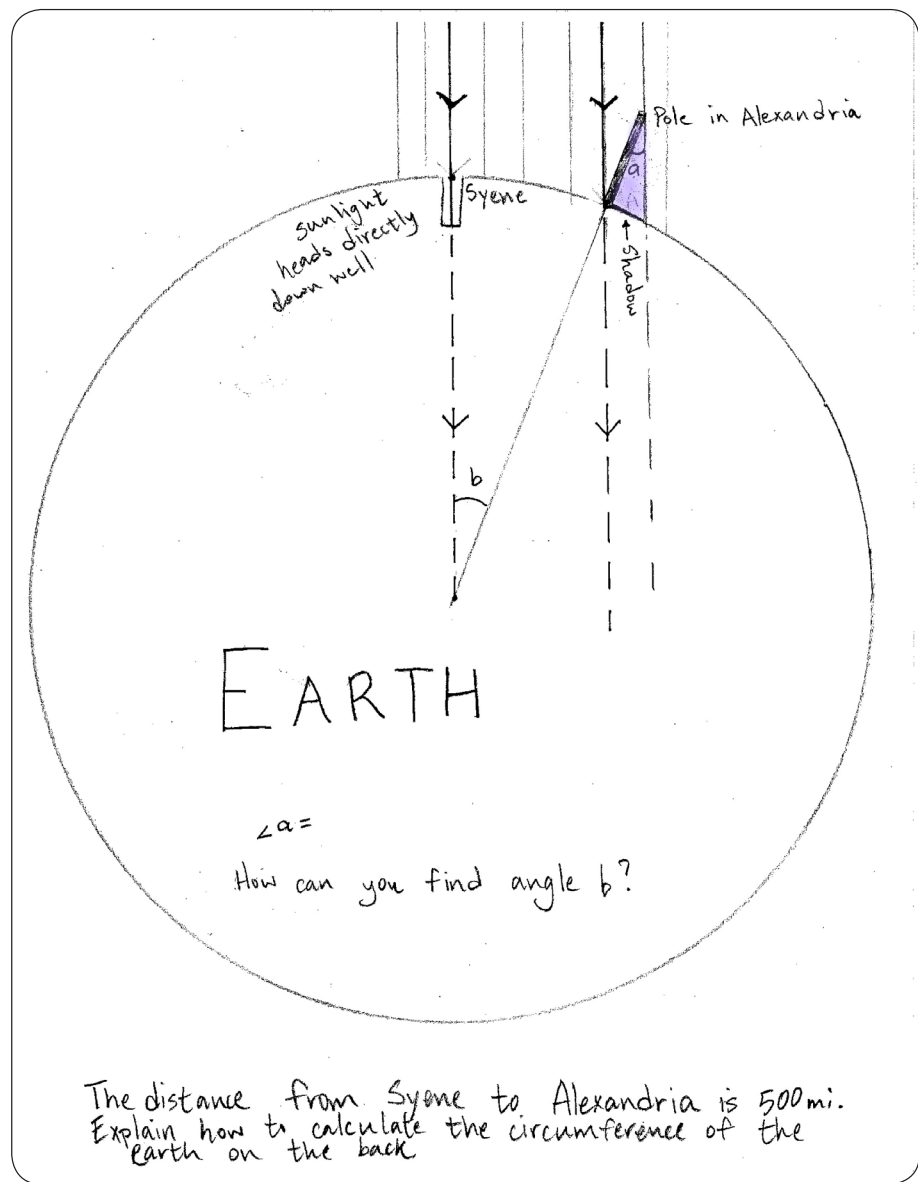 Pole in Alexandria
a
Syene
sunlight
heads directly
down well
← Shadow
b
EARTH
∠a=
How can you find angle b?
The distance from Syene to Alexandria is 500mi.
Explain how to calculate the circumference of the
earth on the back